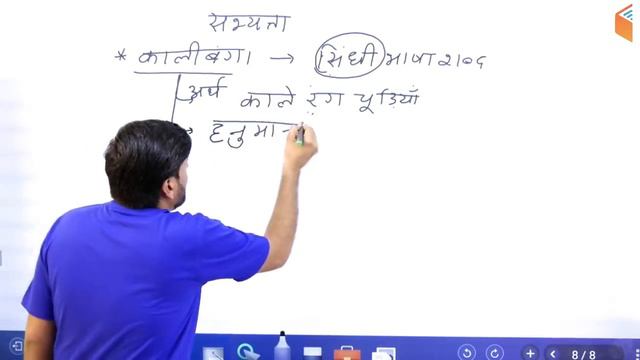 सभ्यता
* कालीबंगा → सिंधी भाषा शब्द
अर्थ काले रंग चूड़ियाँ
→ हनुमान
8/8